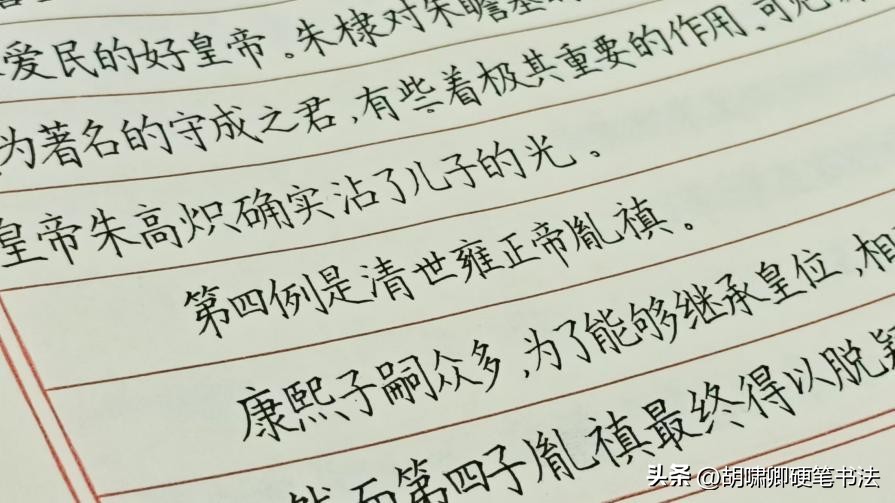 爱民的好皇帝。朱棣对朱瞻基
为著名的守成之君,有些着极其重要的作用、可见
皇帝朱高炽确实沾了儿子的光。
第四例是清世雍正帝胤禛。
康熙子嗣众多,为了能够继承皇位,相
然而第四子胤禛最终得以脱颖
头条 @胡啸卿硬笔书法